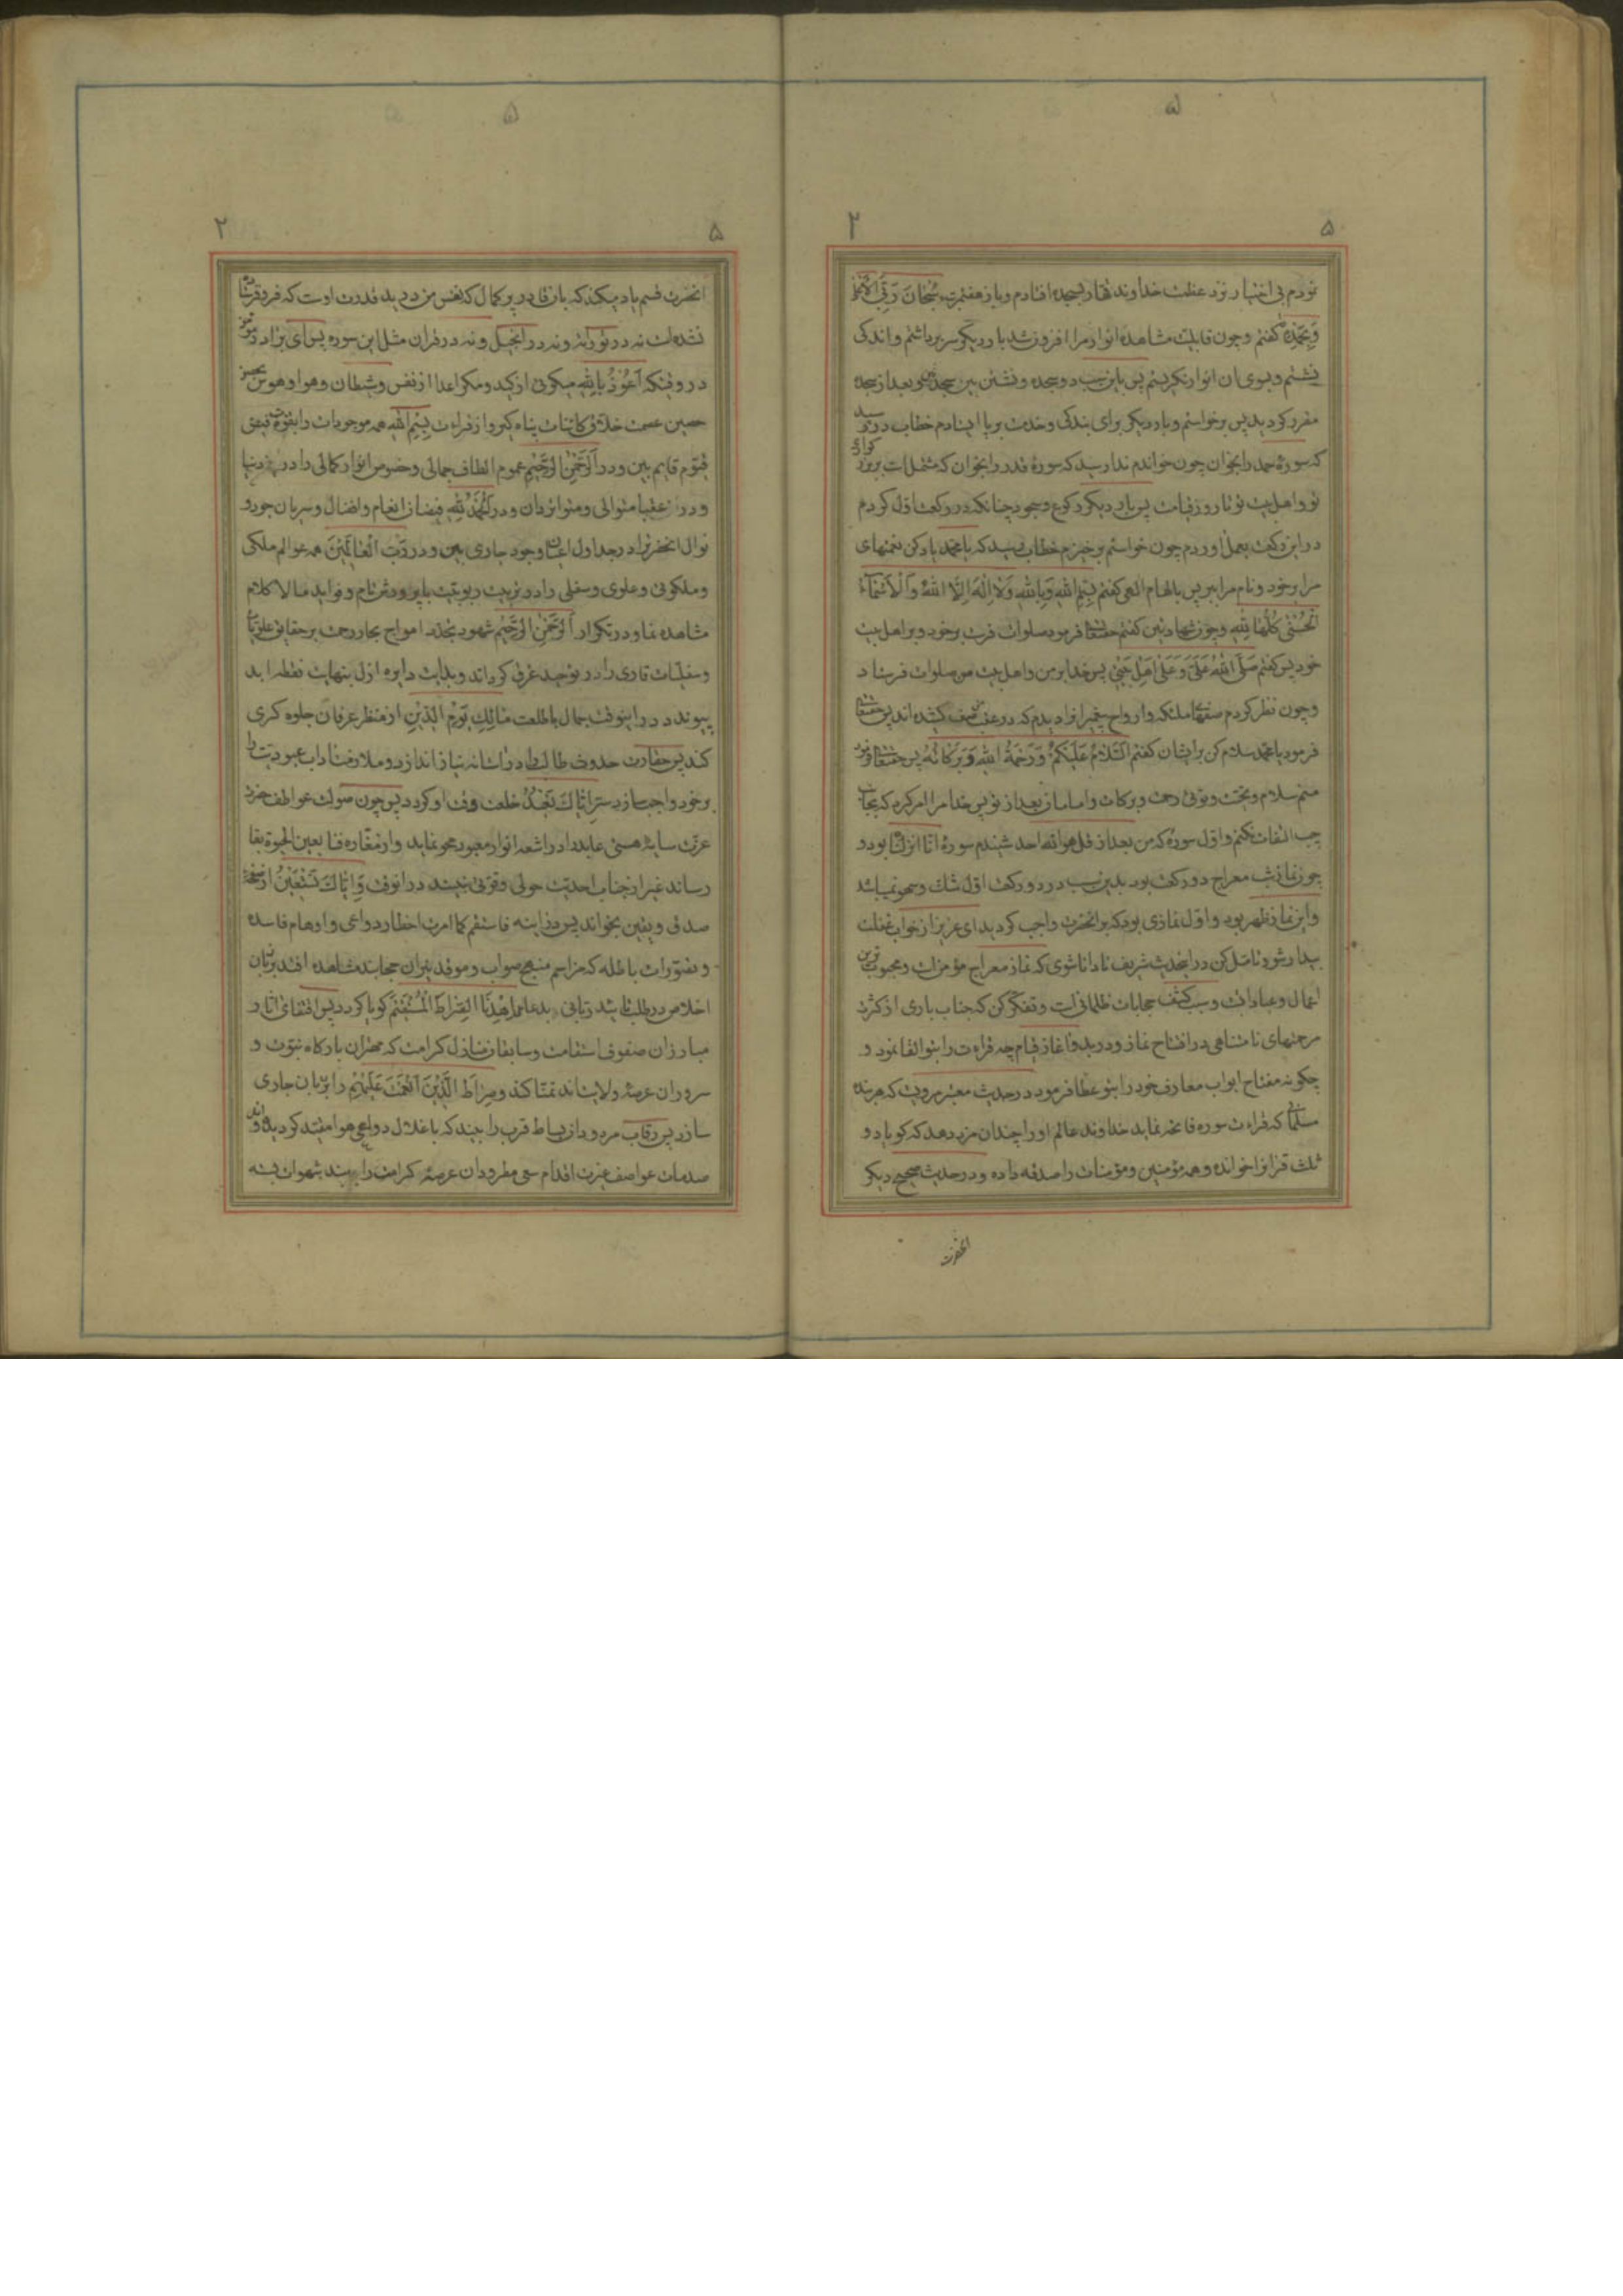 ۵
۵ ۲
نودم بی اختیار نزد عظمت خداوند قهار بسجده افتادم و باز هفتمرتبه سُبْحَانَ رَبِّیَ الْاَعْلیٰ
وَبِحَمْدِهِ گفتم و چون قابلیت مشاهده انوار مرا افزون شد بار دیگر سر برداشتم و اندکی
نشستم و بسوی آن انوار نگریستم پس باین سبب دو سجده و نشستن بین سجدتین و بعد از سجده
مقرر گردید پس برخواستم و بار دیگر برای بندگی و خدمت برپا ایستادم خطاب در رسید
که سورهٔ حمد را بخوان چون خواندم ندا رسید که سورهٔ قدر را بخوان که مشتمل است بر
تو و اهل بیت تو تا روز قیامت پس بار دیگر رکوع و سجود چنانکه در رکعت اول کردم
در این رکعت بعمل اوردم چون خواستم برخیزم خطاب رسید که یا محمد یاد کن نعمتهای
مرا بر خود و نام مرا ببر پس بالهام الهی گفتم بِسْمِ اللهِ وَبِاللهِ وَلَا اِلٰهَ اِلَّا اللهُ وَالْاَسْمَاءُ
الْحُسْنٰی کُلُّهَا لِلّٰهِ و چون شهادتین گفتم حقتعالی فرمود صلوات فرست بر خود و بر اهل بیت
خود پس گفتم صَلَّی اللهُ عَلَیَّ وَعَلٰی اَهْلِ بَیْتِی پس خدا بر من و اهل بیت من صلوات فرستاد
و چون نظر کردم صفهای ملائکه و ارواح پیغمبرانرا دیدم که در عقب من صف کشیده اند پس حقتعالی
فرمود یا محمد سلام کن بر ایشان گفتم اَلسَّلَامُ عَلَیْکُمْ وَرَحْمَةُ اللهِ وَبَرَکَاتُهُ پس حقتعالی فرمود
منم سلام و تحیت و توئی رحمت و برکات و امامان بعد از تو پس خدا مرا امر کرد که بجانب
چپ التفات نکنم و اول سوره که من بعد از قل هو الله احد شنیدم سورهٔ انا انزلناه بود و
چون نماز شب معراج دو رکعت بود بدین سبب در دو رکعت اول شک و سهو نمیباشد
و این نماز ظهر بود و اول نمازی بود که بر انحضرت واجب گردید ای عزیز از خواب غفلت
بیدار شو و تأمل کن در این حدیث شریف تا دانا شوی که نماز معراج مؤمن است و محبوب ترین
اعمال و عبادات و سبب کشف حجابات ظلمانی است و تفکر کن که جناب باری از کثرت
مرحمتهای نامتناهی در افتتاح نماز و در بدو اغاز قیام چه قراءت را بتو القا نمود و
چگونه مفتاح ابواب معارف خود را بتو عطا فرمود در حدیث معتبر مرویست که هر بنده
مسلمانی که قراءت سوره فاتحه نماید خداوند عالم او را چندان مزد دهد که گویا دو
ثلث قرانرا خوانده و همه مؤمنین و مؤمنات را صدقه داده و در حدیث صحیح دیگر
انحضرت
۵
۵ ۲
انحضرت قسم یاد میکند که بان قادر پر کمال که نفس من در ید قدرت اوست که فرو فرستاده
نشده است نه در توراة و نه در انجیل و نه در قران مثل این سوره پس ای برادر عزیز
در وقتیکه اَعُوْذُ بِاللهِ میگوئی از کید و مکر اعدا از نفس و شیطان و هوا و هوس بحصن
حصین عصمت خلاق کائنات پناه گیر و از قراءت بِسْمِ اللهِ همه موجودات را بقوه قیومی
قیوم قایم بین و در اَلرَّحْمٰنِ الرَّحِیْمِ عموم الطاف جمالی و خصوص انوار کمالی را در دنیا
و در عقبا متوالی و متواتر دان و در اَلْحَمْدُ لِلّٰهِ فیضان انعام و افضال و سریان جود و
نوال انحضرترا در جداول اعیان وجود جاری بین و در رَبِّ الْعَالَمِیْنَ همه عوالم ملکی
و ملکوتی و علوی و سفلی را در تربیت ربوبیت
مشاهده نما و در تکرار اَلرَّحْمٰنِ الرَّحِیْمِ شهود تجدد امواج بحار رحمت بر حقایق علویات
و سفلیات قاری را در توحید غرق گرداند و بدایت دایره ازل بنهایت نقطه ابد
پیوندد در اینوقت جمال با طلعت مَالِكِ یَوْمِ الدِّیْنِ از منظر عرفان جلوه گری
کند پس حقارت حدوث طالب را در استانه نیاز اندازد و ملازمت اداب عبودیت را
بر خود واجب سازد ستر اِیَّاكَ نَعْبُدُ خلعت وقت او گردد پس چون صولت عواطف حضرت
عزت سایه هستی عابد را در اشعه انوار معبود محو نماید و از مغاره فنا بعین الحیوة بقا
رساند غیر از جناب احدیت حولی و قوتی نبیند در انوقت وَاِیَّاكَ نَسْتَعِیْنُ از صفحه
صدق و یقین بخواند پس در اثنه فاستقم کما امرت اخطار دواعی و اوهام فاسده
و تصورات باطله که مراسم منهج صواب و موقد نیران حجابند مشاهده افتد بزبان
اخلاص در طلب تایید ربانی بدعای اِهْدِنَا الصِّرَاطَ الْمُسْتَقِیْمَ گویا گردد پس اقتفای اثار
مبارزان صفوف استقامت و سابقان منازل کرامت که مهتران بارگاه نبوت و
سروران عرصهٔ ولایت اند تمنا کند و صِرَاطَ الَّذِیْنَ اَنْعَمْتَ عَلَیْهِمْ را بر زبان جاری
سازد پس رقاب مردودان بساط قرب را بیند که با غلال دواعی هوا مقید گردیده اند و
صدمات عواصف عزت اقدام سعی مطرودان عرصهٔ کرامت را بیند شهوات بسته